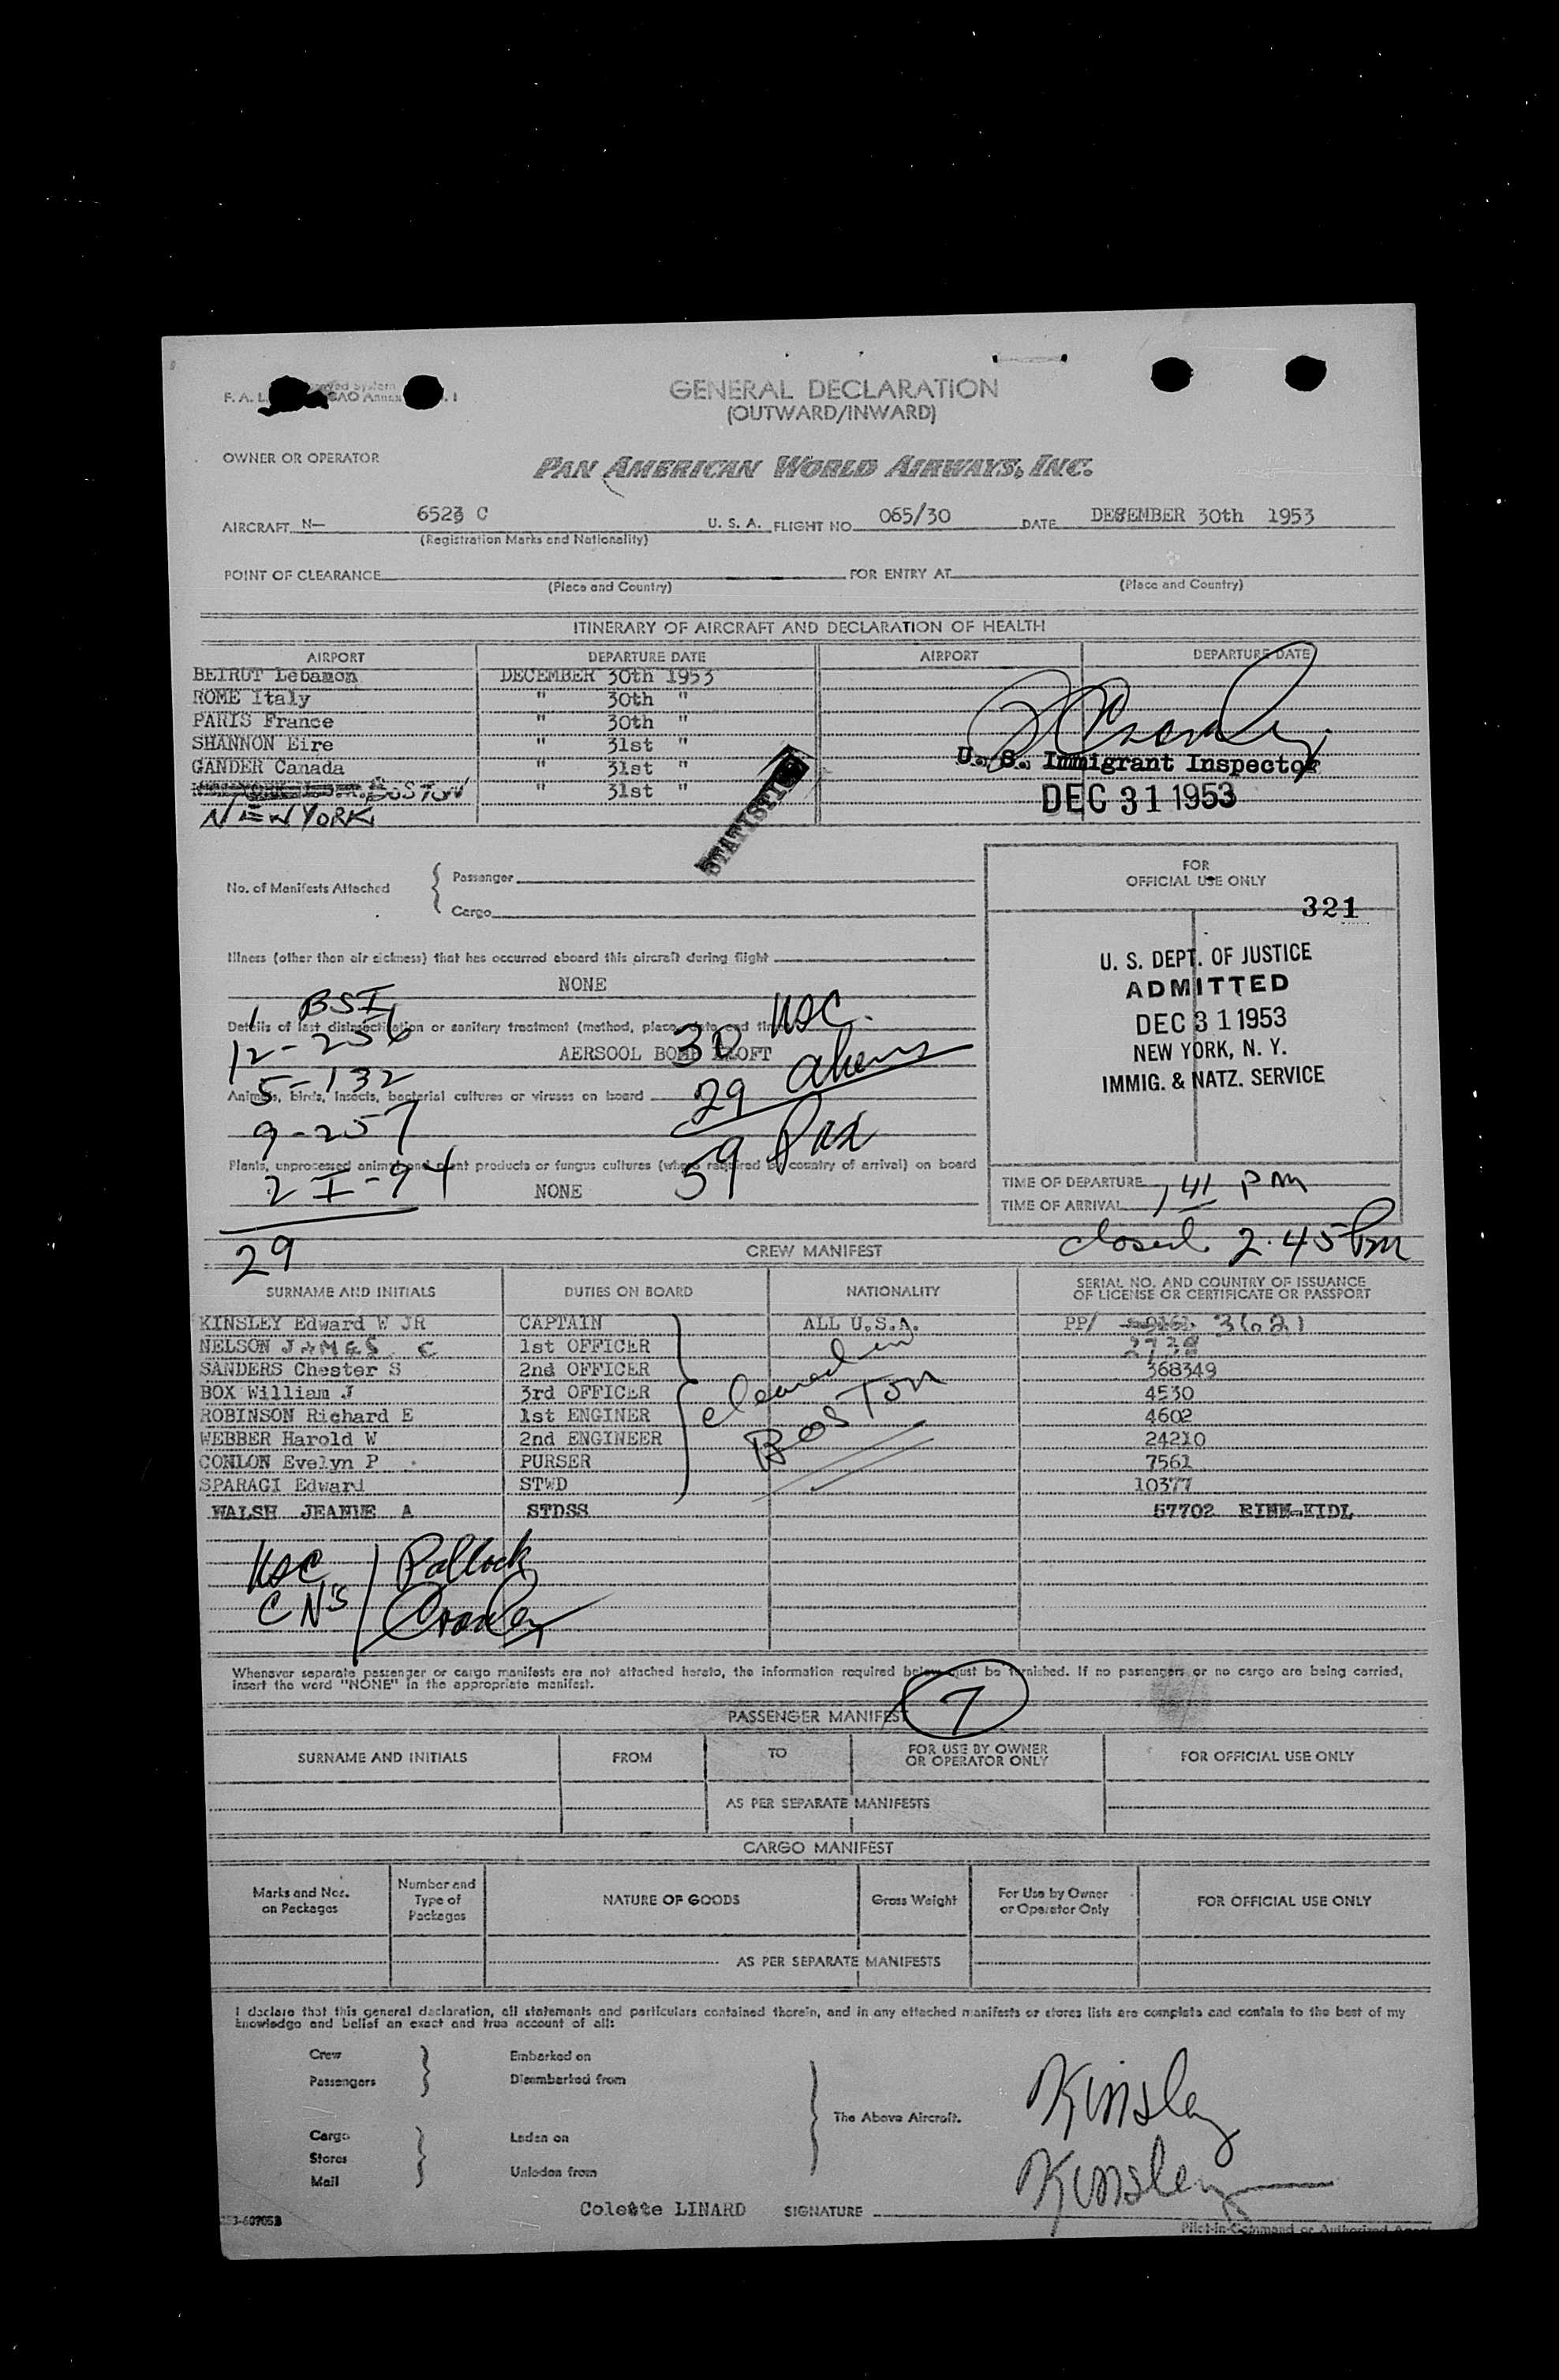 GENERAL DECLARATION
(OUTWARD/INWARD)
OWNER OR OPERATOR PAN AMERICAN WORLD AIRWAYS, INC.
AIRCRAFT N— 6523 C U. S. A. FLIGHT NO. 065/30 DATE DECEMBER 30th 1953
(Registration Marks and Nationality)
POINT OF CLEARANCE FOR ENTRY AT
(Place and Country) (Place and Country)
ITINERARY OF AIRCRAFT AND DECLARATION OF HEALTH
AIRPORT DEPARTURE DATE AIRPORT DEPARTURE DATE
BEIRUT Lebanon DECEMBER 30th 1953
ROME Italy " 30th "
PARIS France " 30th "
SHANNON Eire " 31st "
GANDER Canada " 31st "
BOSTON " 31st "
NEW YORK
U. S. Immigrant Inspector
DEC 31 1953
STATISTICS
No. of Manifests Attached
Passenger
Cargo
FOR
OFFICIAL USE ONLY
321
U. S. DEPT. OF JUSTICE
ADMITTED
DEC 31 1953
NEW YORK, N. Y.
IMMIG. & NATZ. SERVICE
Illness (other than air sickness) that has occurred aboard this aircraft during flight
NONE
1 BSI
Details of last disinsectization or sanitary treatment (method, place, date and time)
12-256
AERSOOL BOMB CROFT
30 USC.
29 aliens
59 Pax
5-132
Animals, birds, insects, bacterial cultures or viruses on board
9-257
Plants, unprocessed animal and plant products or fungus cultures (where required by country of arrival) on board
2 I-94
NONE
29
TIME OF DEPARTURE
TIME OF ARRIVAL 1 41 PM
closed 2.45 Pm
CREW MANIFEST
SURNAME AND INITIALS DUTIES ON BOARD NATIONALITY SERIAL NO. AND COUNTRY OF ISSUANCE OF LICENSE OR CERTIFICATE OR PASSPORT
KINSLEY Edward W JR CAPTAIN ALL U.S.A. PP/ 3621
NELSON JAMES C 1st OFFICER 2728
SANDERS Chester S 2nd OFFICER 368349
BOX William J 3rd OFFICER 4530
ROBINSON Richard E 1st ENGINER 4602
WEBBER Harold W 2nd ENGINEER 24210
CONLON Evelyn P PURSER 7561
SPARAGI Edward STWD 10377
WALSH JEANNE A STDSS 57702
cleared in
BOSTON
USC / Pollock
CN'S
Whenever separate passenger or cargo manifests are not attached hereto, the information required below must be furnished. If no passengers or no cargo are being carried,
insert the word "NONE" in the appropriate manifest.
PASSENGER MANIFEST
7
SURNAME AND INITIALS FROM TO FOR USE BY OWNER OR OPERATOR ONLY FOR OFFICIAL USE ONLY
AS PER SEPARATE MANIFESTS
CARGO MANIFEST
Marks and Nos. on Packages Number and Type of Packages NATURE OF GOODS Gross Weight For Use by Owner or Operator Only FOR OFFICIAL USE ONLY
AS PER SEPARATE MANIFESTS
I declare that this general declaration, all statements and particulars contained therein, and in any attached manifests or stores lists are complete and contain to the best of my
knowledge and belief an exact and true account of all:
Crew Embarked on
Passengers Disembarked from
The Above Aircraft.
Cargo Laden on
Stores
Mail Unladen from
Kinsley
Kinsley
Colette LINARD SIGNATURE
Pilot-in-Command or Authorized Agent